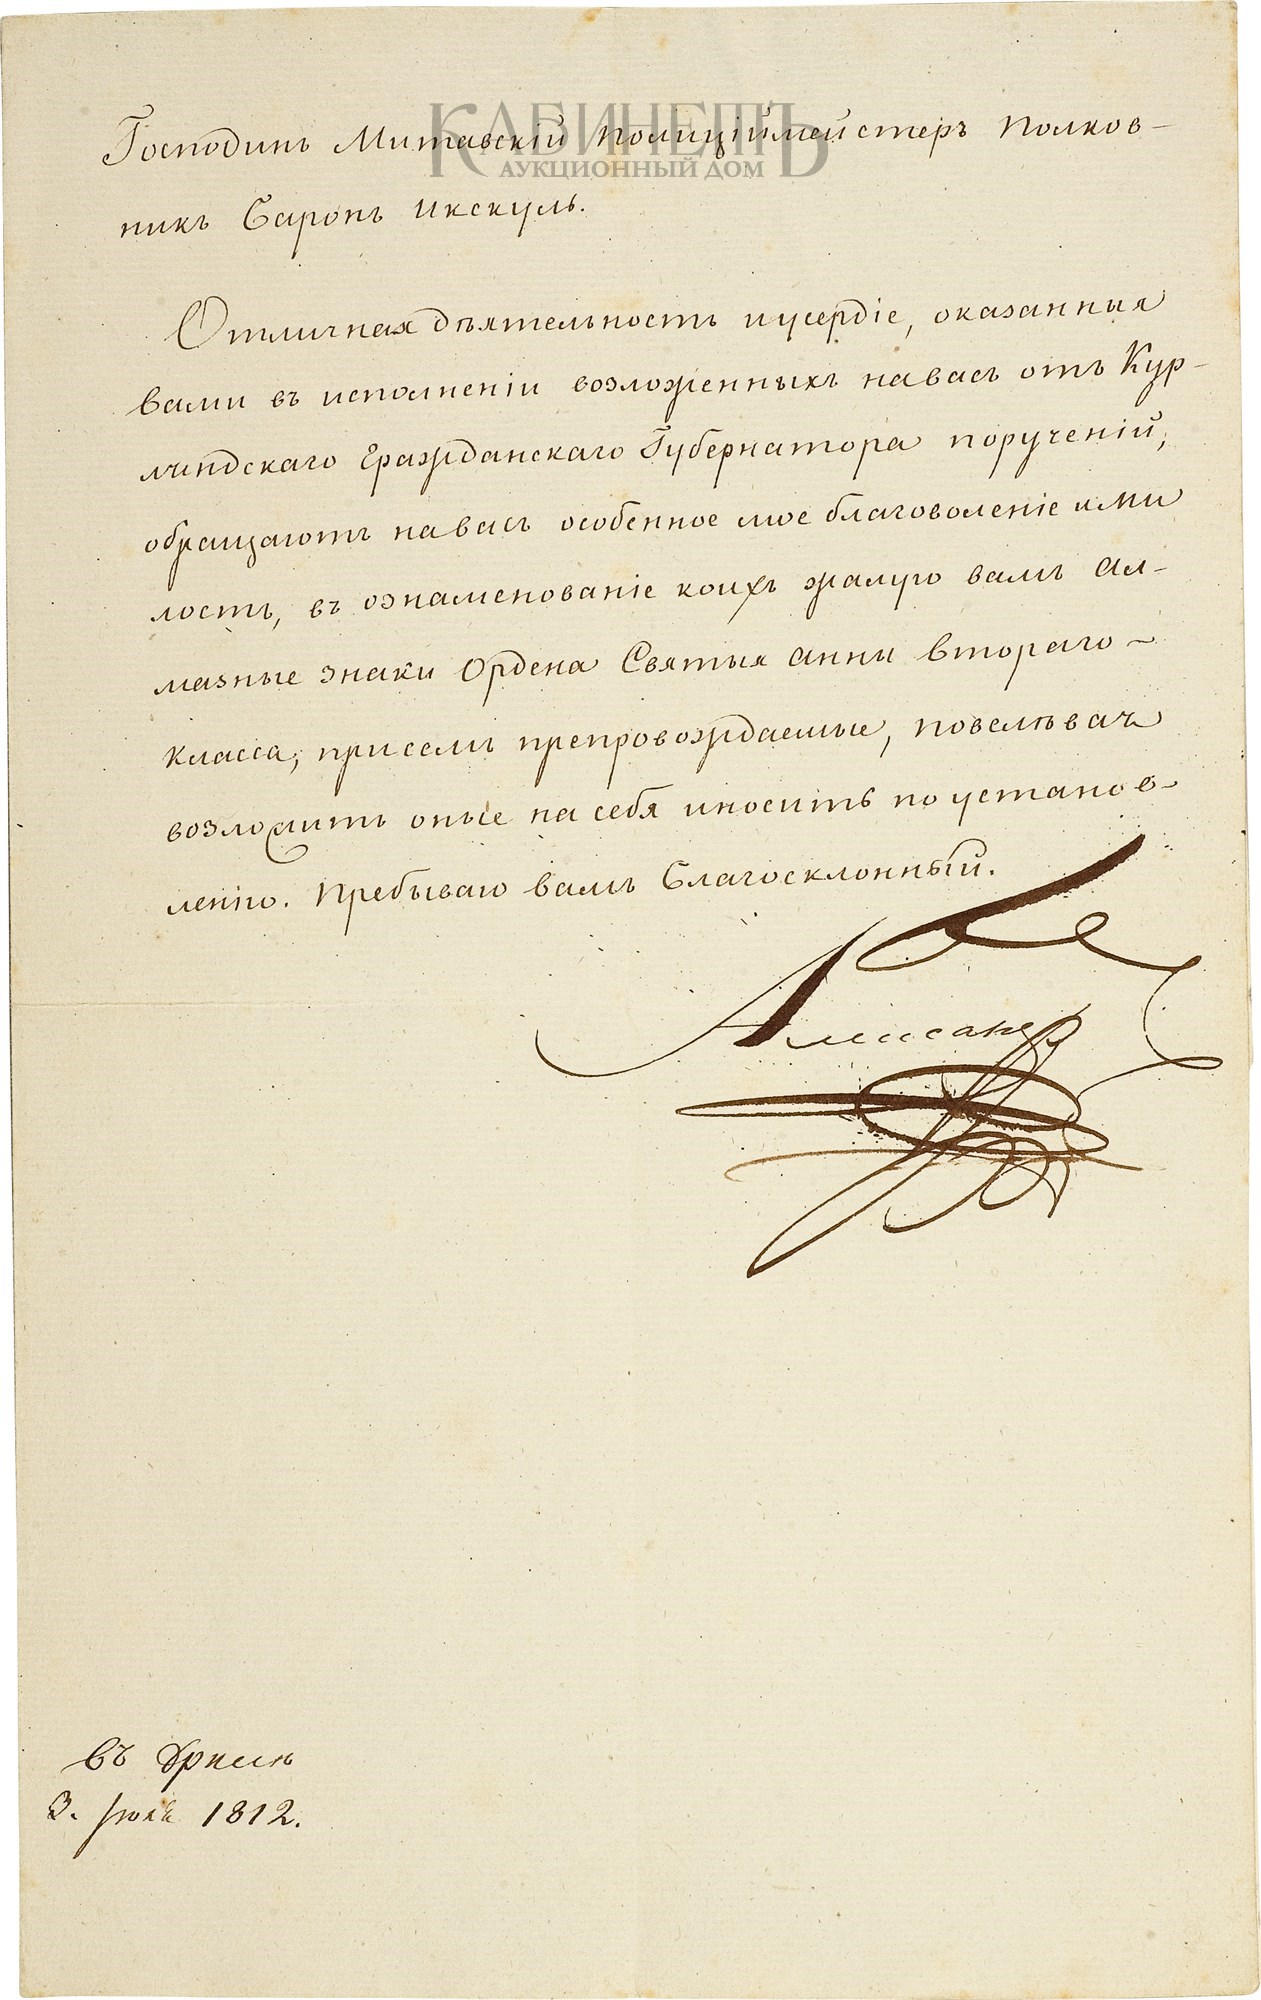 КАБИНЕТЪ
АУКЦИОННЫЙ ДОМ
Господинъ Митавскій Полиціймейстеръ Полков-
никъ Баронъ Икскуль.
Отличная дѣятельность и усердіе, оказанныя
вами въ исполненіи возложенныхъ на васъ отъ Кур-
ляндскаго Гражданскаго Губернатора порученій,
обращаютъ на васъ особенное мое благоволеніе и ми
лость, въ ознаменованіе коихъ жалую вамъ Ал-
мазные знаки Ордена Святыя Анны втораго
класса, при семъ препровождаемые, повелѣвая
возложить оные на себя и носить по установ-
ленію. Пребываю вамъ благосклонный.
Александръ
въ Дриссѣ
3. Июля 1812.